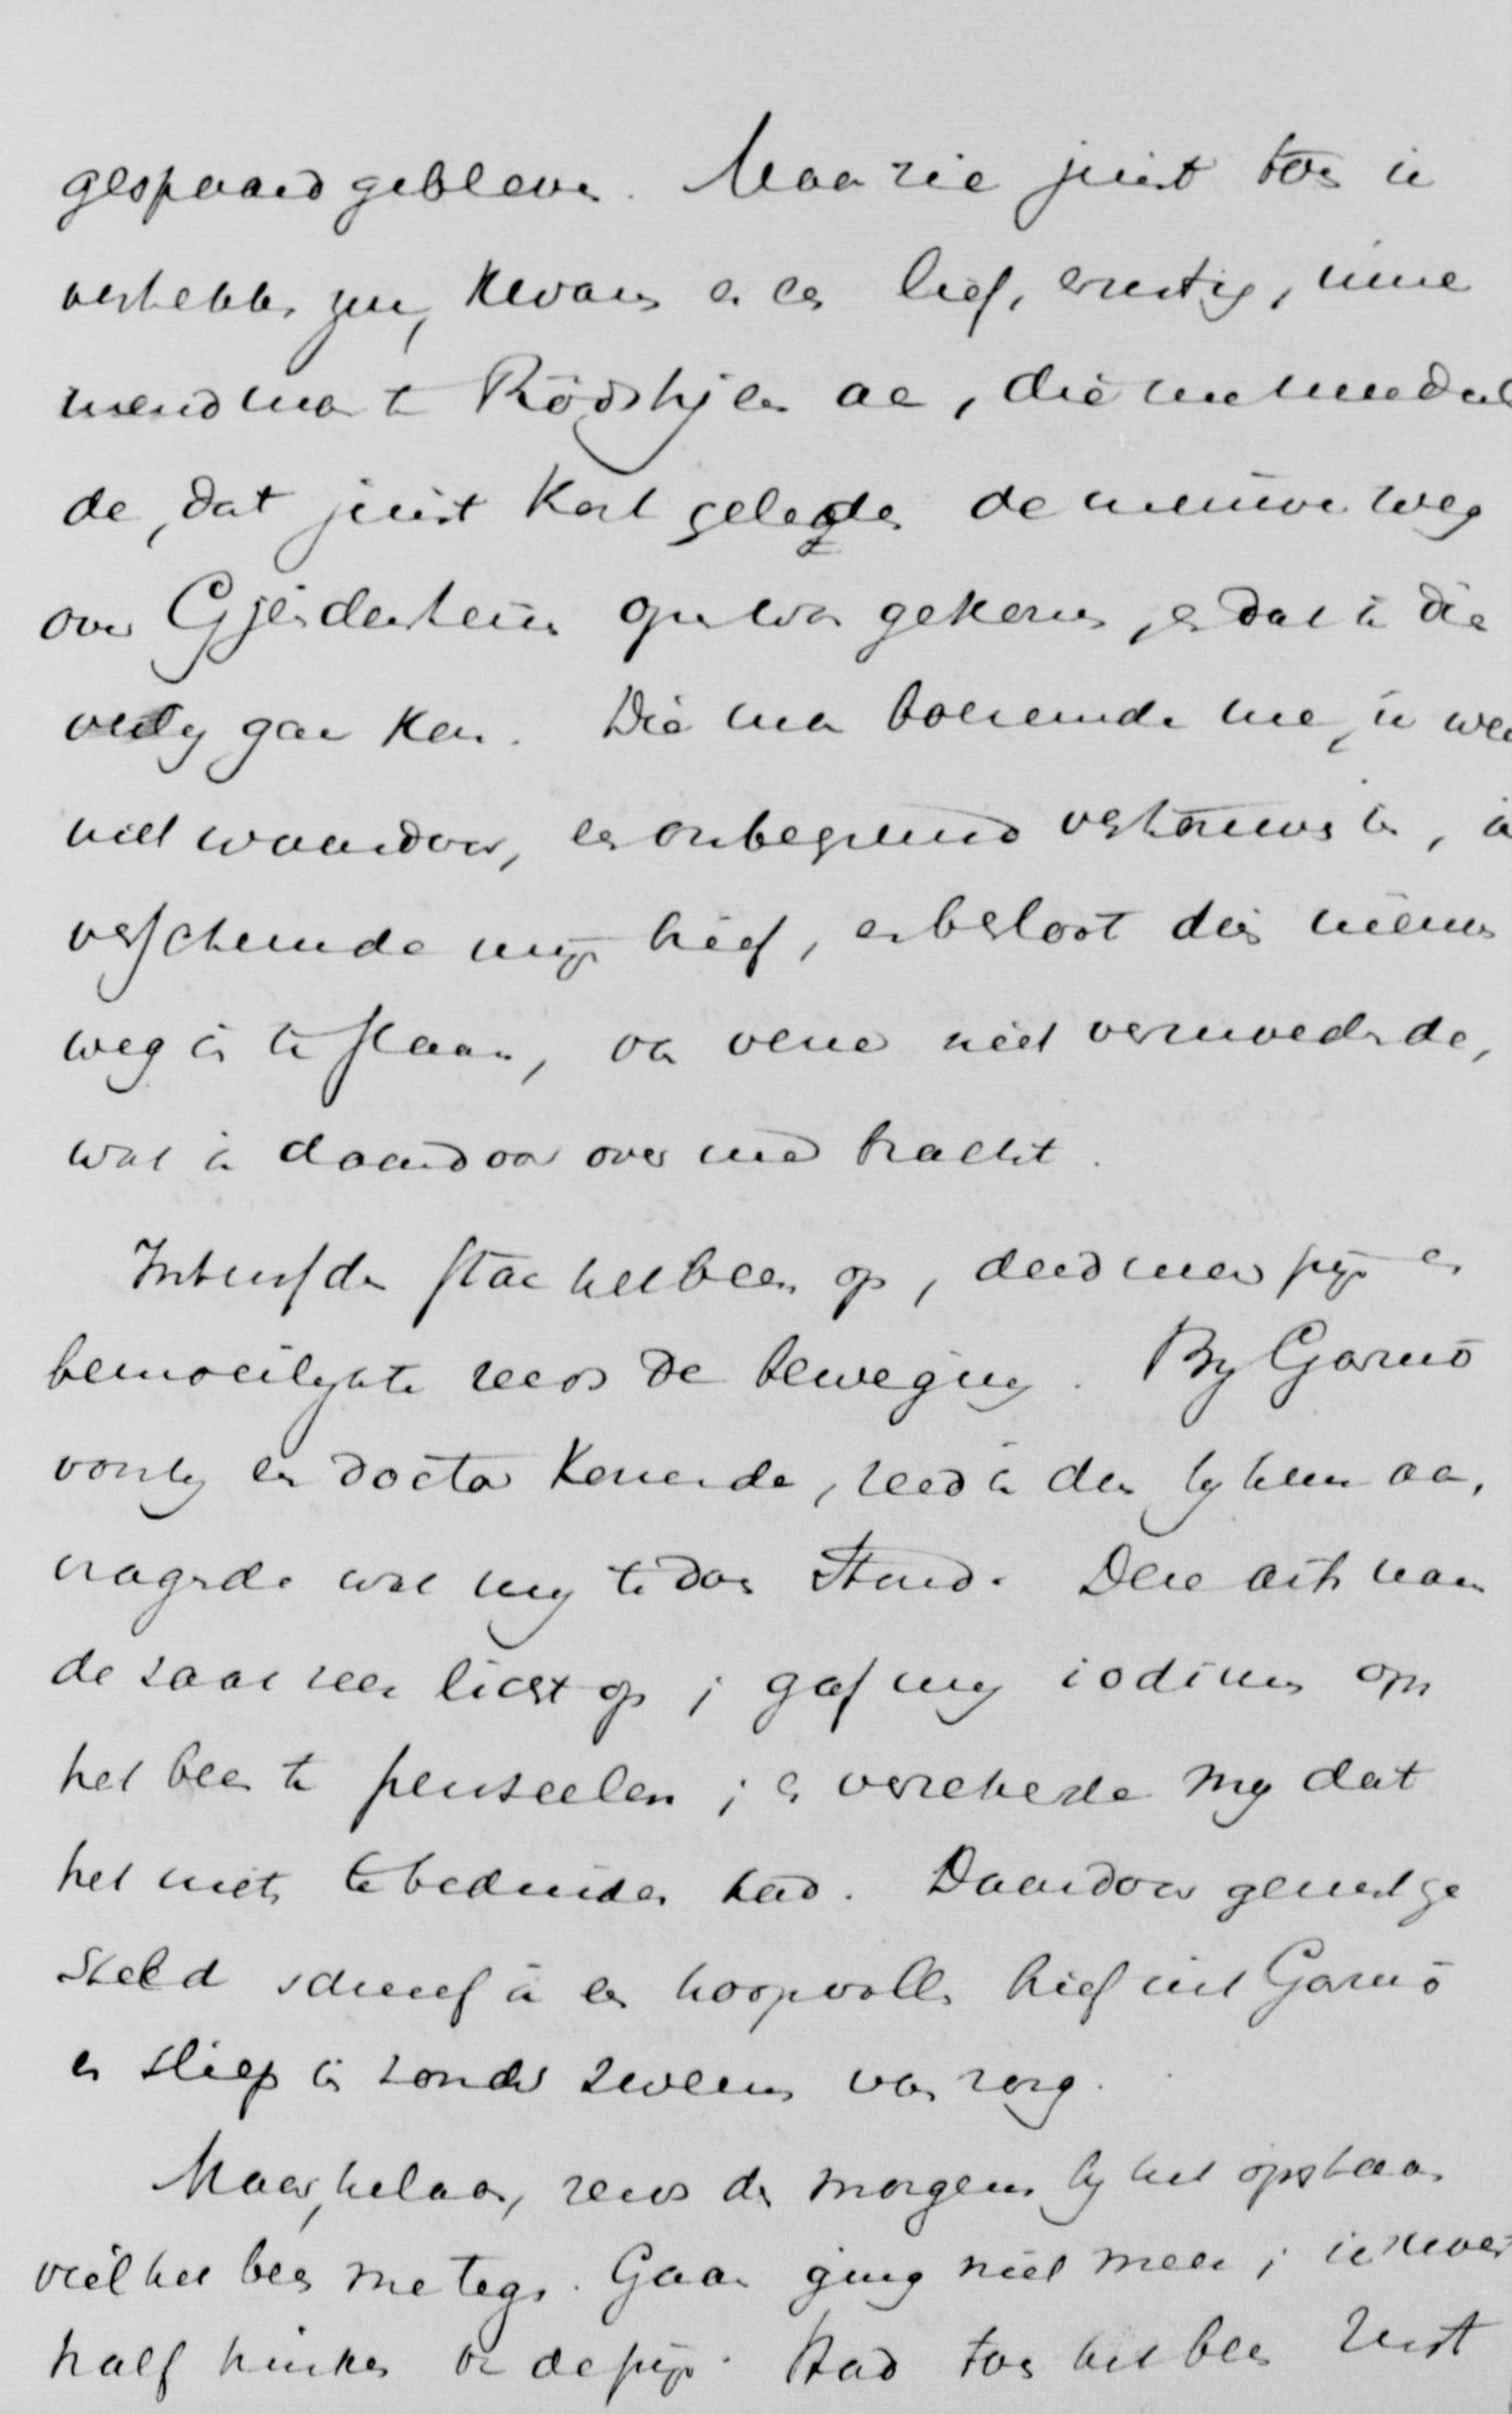 gespaard gebleven. Maar zie juist toen ik
vertrekken zou, kwam er een lief, ernstig, innem
mend man te Rödskjär aan, die me mededeel
de, dat juist kort geleden de nieuwe weg
over Gjerdesheim open was gekomen, en dat ik die
veilig gaan kon. Die man boezemde me, ik weet
niet waardoor, een onbegrensd vertrouwen in, ik
verscheurde mijn brief, en besloot dien nieuwen
weg in te slaan, van verre niet vermoedende,
wat ik daardoor over me bracht.
Intusschen stak het been op, deed meer pijn en
bemoeilijkte reeds de beweging. Bij Garmo
voorbij een doctor komende, reed ik den bij hem aan,
vragende wat mij te doen stond. Deze arts nam
de zaak zeer licht op; gaf mij iodium om
het been te penseelen; en verzekerde mij dat
het niets te beduiden had. Daardoor gerustge
steld schreef ik een hoopvollen brief uit Garmo
en sliep ik zonder zweem van zorg.
Maar, helaas, reeds des morgens bij het opstaan
viel het been me tegen. Gaan ging niet meer; ik kwam
half hinken van de pijn. Had toen het been rust